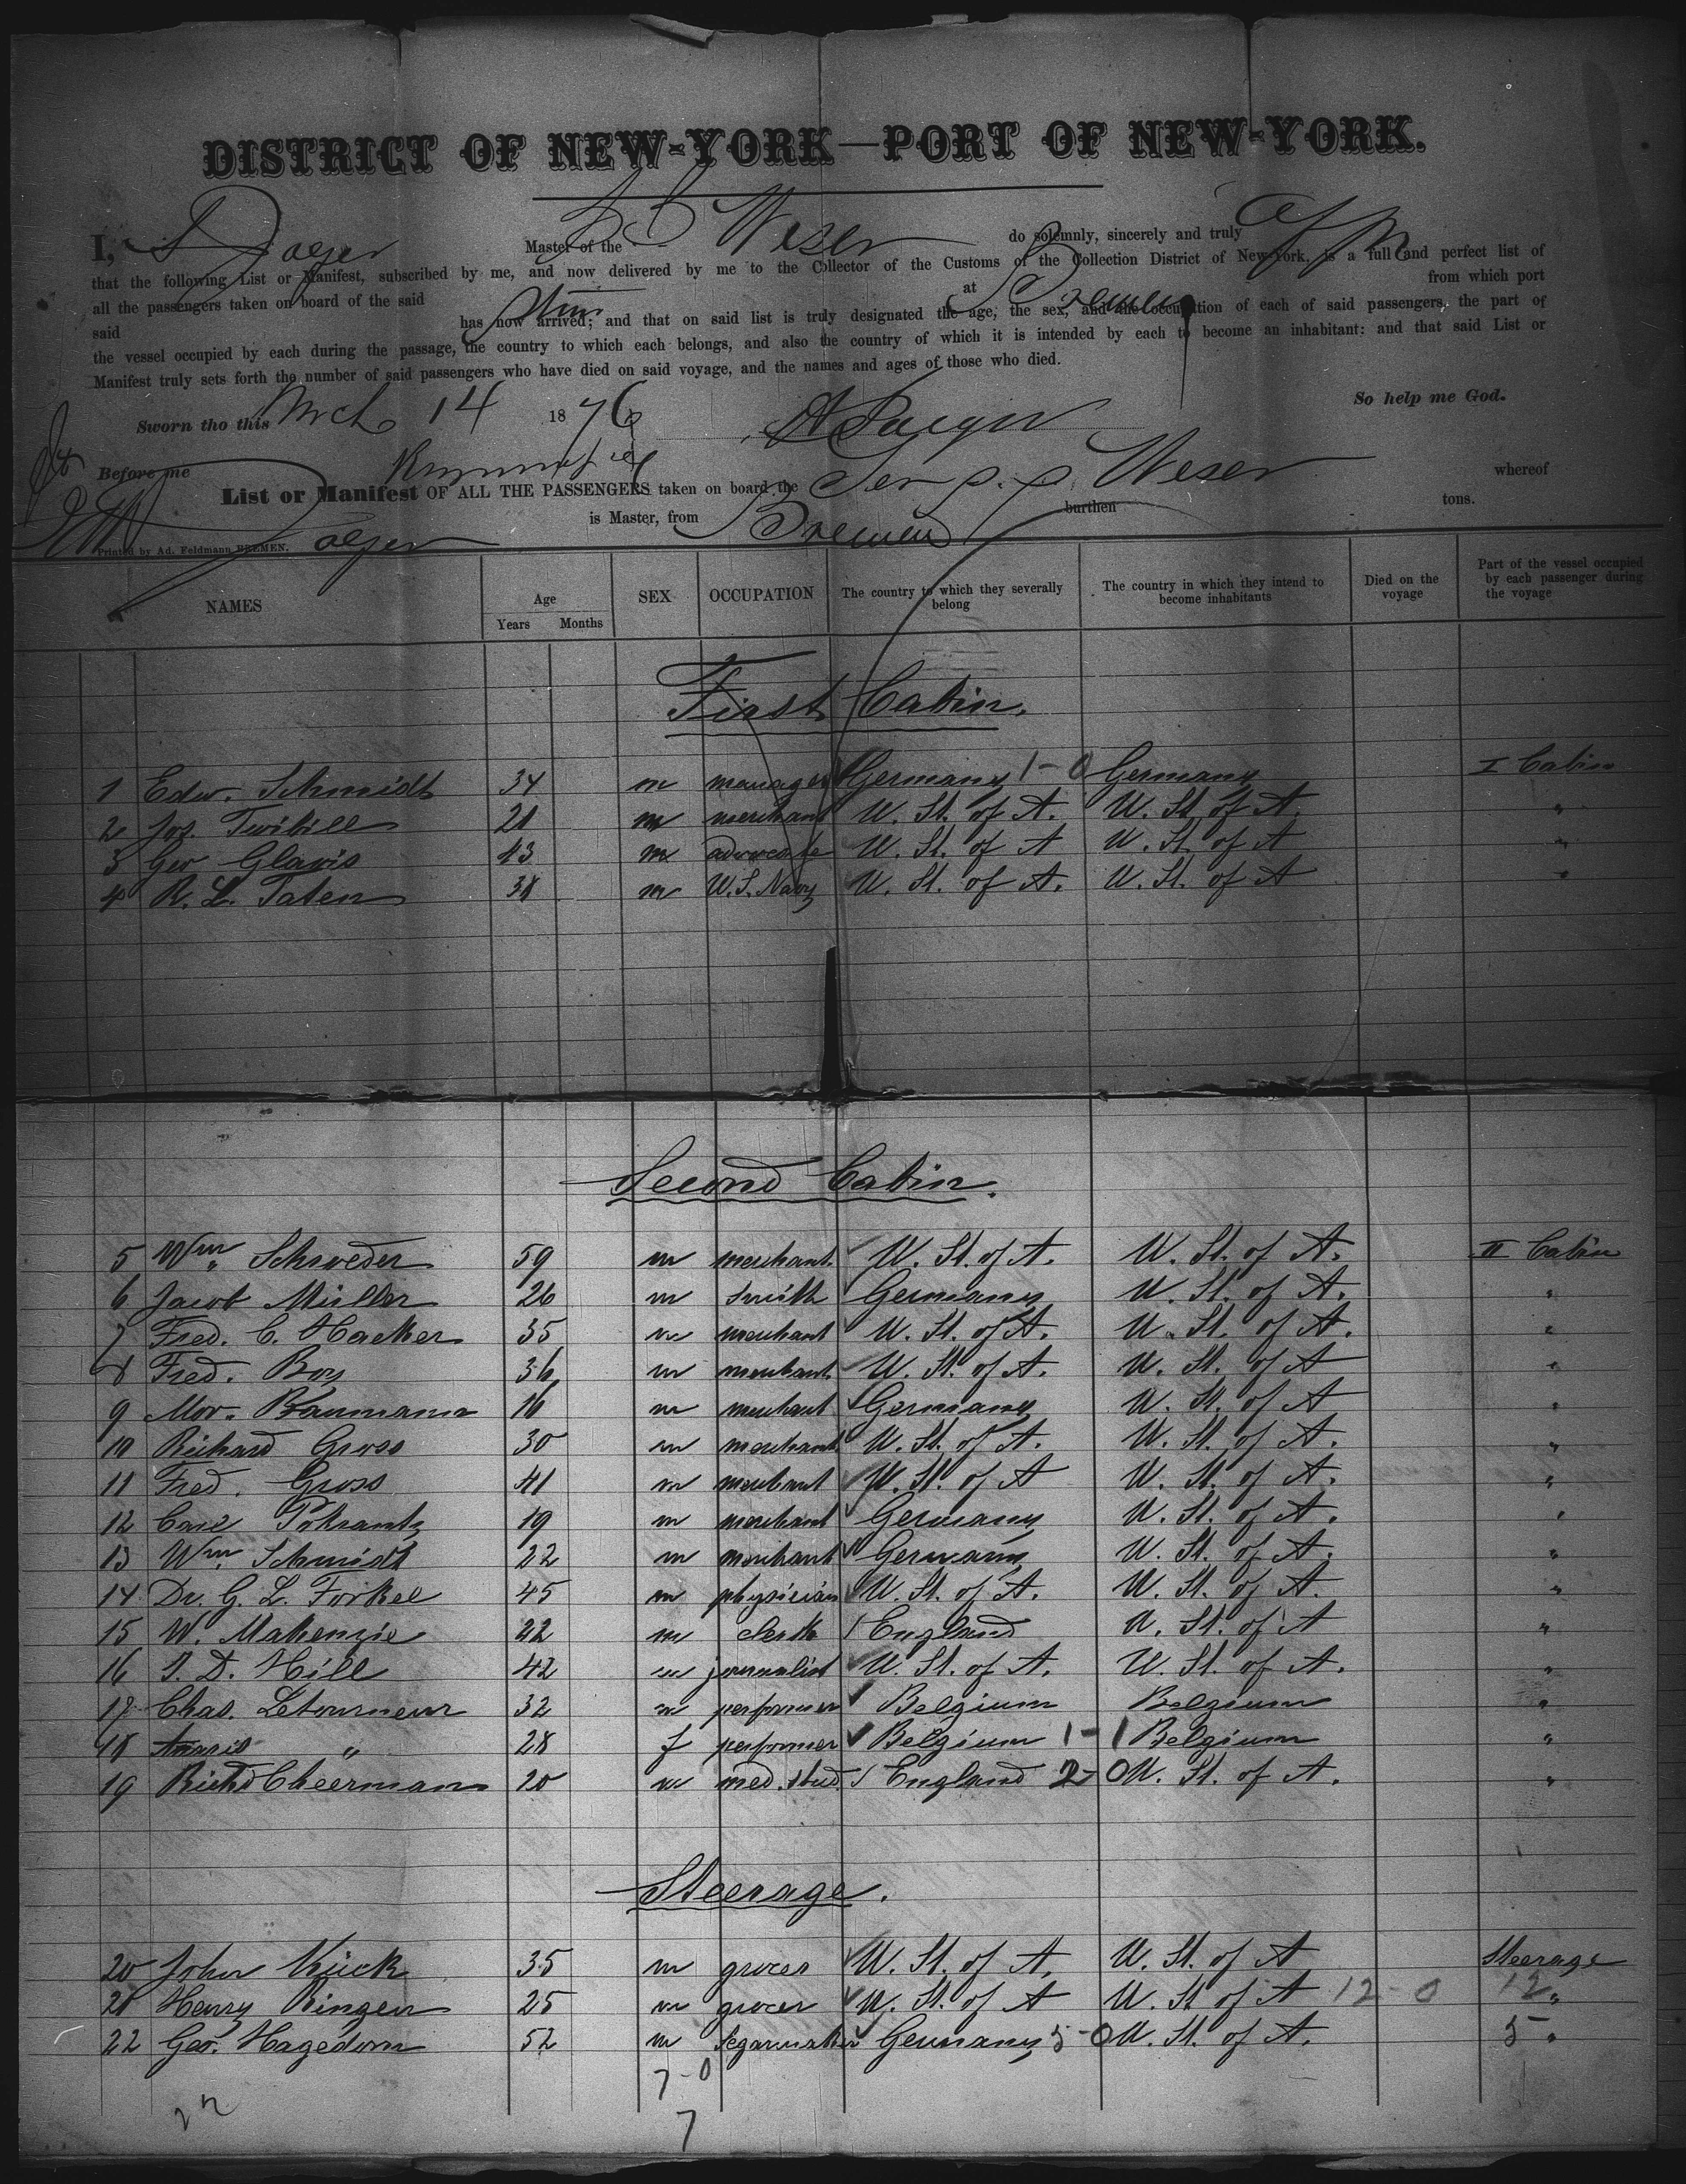 DISTRICT OF NEW-YORK—PORT OF NEW-YORK.
I, Jaeger Master of the SS Weser do solemnly, sincerely and truly
that the following List or Manifest, subscribed by me, and now delivered by me to the Collector of the Customs of the Collection District of New-York, is a full and perfect list of
all the passengers taken on board of the said at Bremen from which port
said has now arrived; and that on said list is truly designated the age, the sex, and the occupation of each of said passengers, the part of
the vessel occupied by each during the passage, the country to which each belongs, and also the country of which it is intended by each to become an inhabitant: and that said List or
Manifest truly sets forth the number of said passengers who have died on said voyage, and the names and ages of those who died.
So help me God.
Sworn tho this Mrch 14 1876
Before me
List or Manifest OF ALL THE PASSENGERS taken on board the Ger s. s. Weser whereof
Jaeger is Master, from Bremen burthen tons.
Printed by Ad. Feldmann BREMEN.
NAMES Age Years Months SEX OCCUPATION The country to which they severally belong The country in which they intend to become inhabitants Died on the voyage Part of the vessel occupied by each passenger during the voyage
First Cabin.
1 Edw. Schmidt 34 m manager Germany 1-0 Germany I Cabin
2 Jos. Twibill 21 m merchant U. St. of A. U. St. of A. "
3 Geo Glavis 43 m advocate U. St. of A U. St. of A "
4 R. L. 38 m U. S. Navy U. St. of A. U. St. of A "
Second Cabin.
5 Wm Schroeder 59 m merchant U. St. of A. U. St. of A. II Cabin
6 Jacob Müller 26 m smith Germany U. St. of A. "
7 Fred. C. Hacker 35 m merchant U. St. of A. U. St. of A. "
8 Fred. Boy 36 m merchant U. St. of A. U. St. of A "
9 Mor. Baumann 16 m merchant Germany U. St. of A "
10 Richard Gross 30 m merchant U. St. of A. U. St. of A. "
11 Fred. Gross 41 m merchant U. St. of A U. St. of A. "
12 Carl Pokrantz 19 m merchant Germany U. St. of A. "
13 Wm Schmidt 22 m merchant Germany U. St. of A. "
14 Dr. G. L. Forkel 45 m physician U. St. of A. U. St. of A. "
15 W. Makenzie 22 m clerk England U. St. of A "
16 D. Hill 42 m journalist U. St. of A. U. St. of A. "
17 Chas. Letourneur 32 m performer Belgium Belgium "
18 " 28 f performer Belgium 1-1 Belgium "
19 Richd Cheerman 20 m med. stud. England 2-0 U. St. of A. "
Steerage.
20 John Kück 35 m grocer U. St. of A. U. St. of A Steerage
21 Henry Ringen 25 m grocer U. St. of A U. St. of A 12-0 12 "
22 Geo. Hagedorn 52 m segarmaker Germany 5-0 U. St. of A. 5 "
7-0
22
7